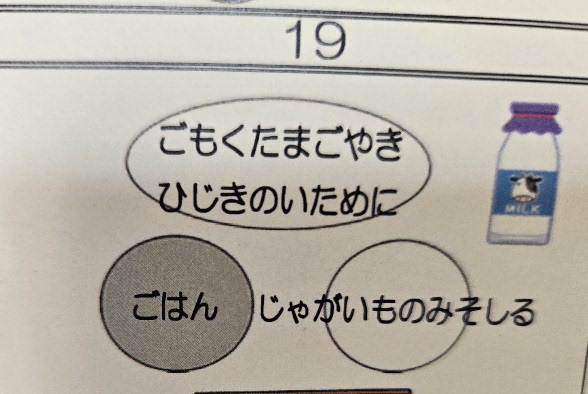 19
ごもくたまごやき
ひじきのいために
MILK
ごはん
じゃがいものみそしる